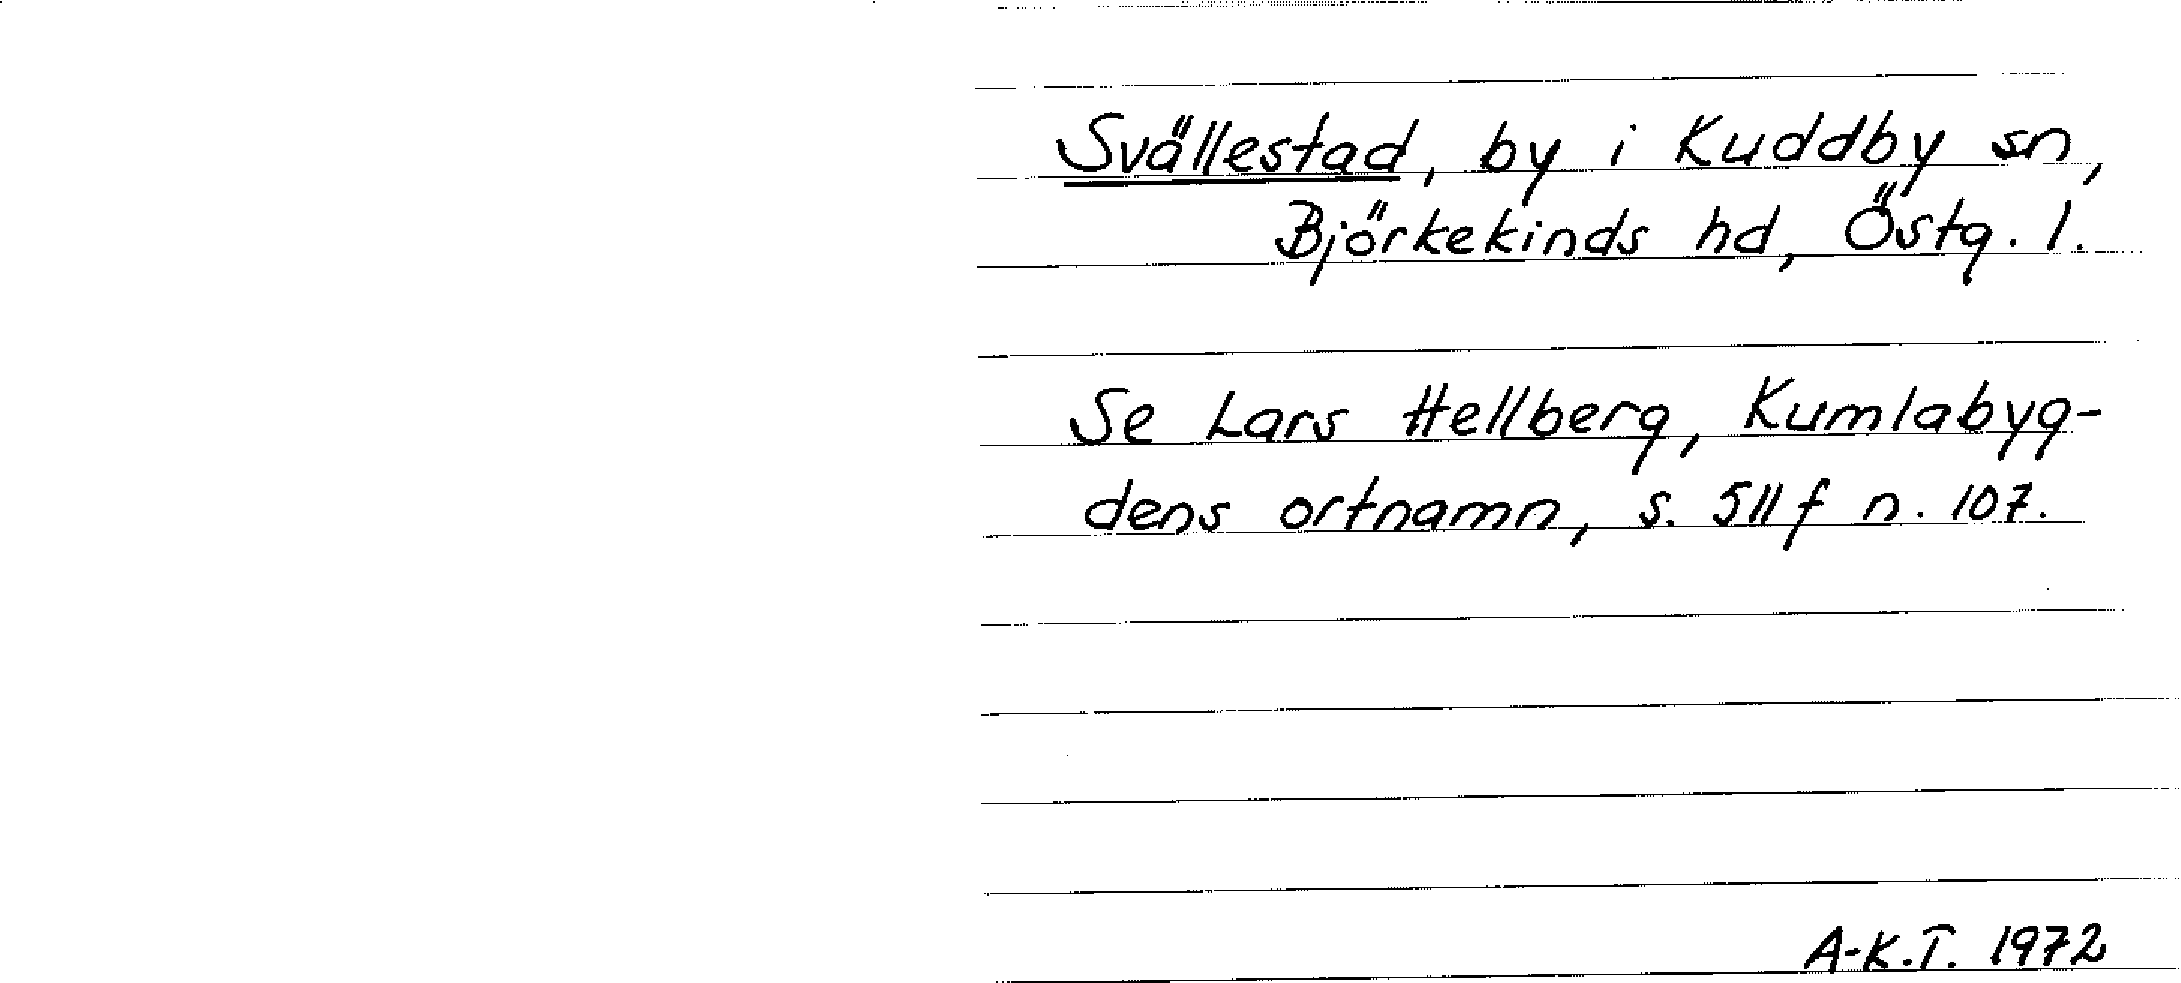 Svällestad, by i Kuddby sn,
Björkekinds hd, Östg. l.
Se Lars Hellberg, Kumlabyg-
dens ortnamn, s. 511 f n. 107.
A-K.T. 1972